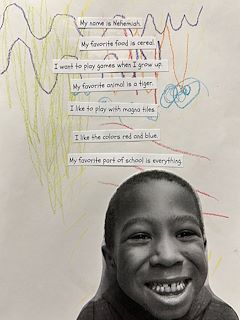 My name is Nehemiah.
My favorite food is cereal.
I want to play games when I grow up.
My favorite animal is a tiger.
I like to play with magna tiles.
I like the colors red and blue.
My favorite part of school is everything.